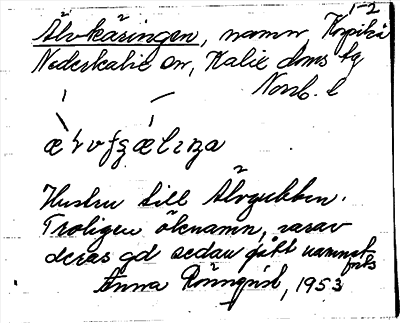 1-2
Älvkäringen, namn Korpikå
Nederkalix sn, Kalix doms. fg
Norrb. l
Hustru till Älvgubben.
Troligen öknamn, varav
deras gd sedan fått namnet
forts
Anna Rönnqvist, 1953